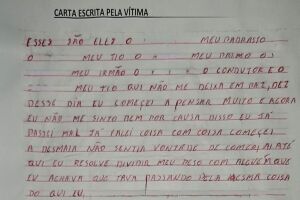 CARTA ESCRITA PELA VÍTIMA
ESSES SÃO ELES O MEU PADRASSO
O MEU TIO O MEU PRIMO O
MEU IRMÃO O CONDUTOR E O
MEU TIO QUI NÃO ME DEIXA EM PAIZ, DEZ
DESSE DIA EU COMEÇEI A PENSAR MUITO E AGORA
EU NÃO ME SINTO BEM POR CAUSA DISSO EU JÁ
PASSEI MAL JÁ FALEI COISA COM COISA COMEÇEI
A DESMAIA NÃO SENTIA VONTADE DE COMER, ALATÉ
QUI EU RESOLVE DIVIDIR MEU PESO COM ALGUÉM QUE
EU ACHAVA QUE TAVA PASSANDO PELA MESMA COISA
DO QUI EU,